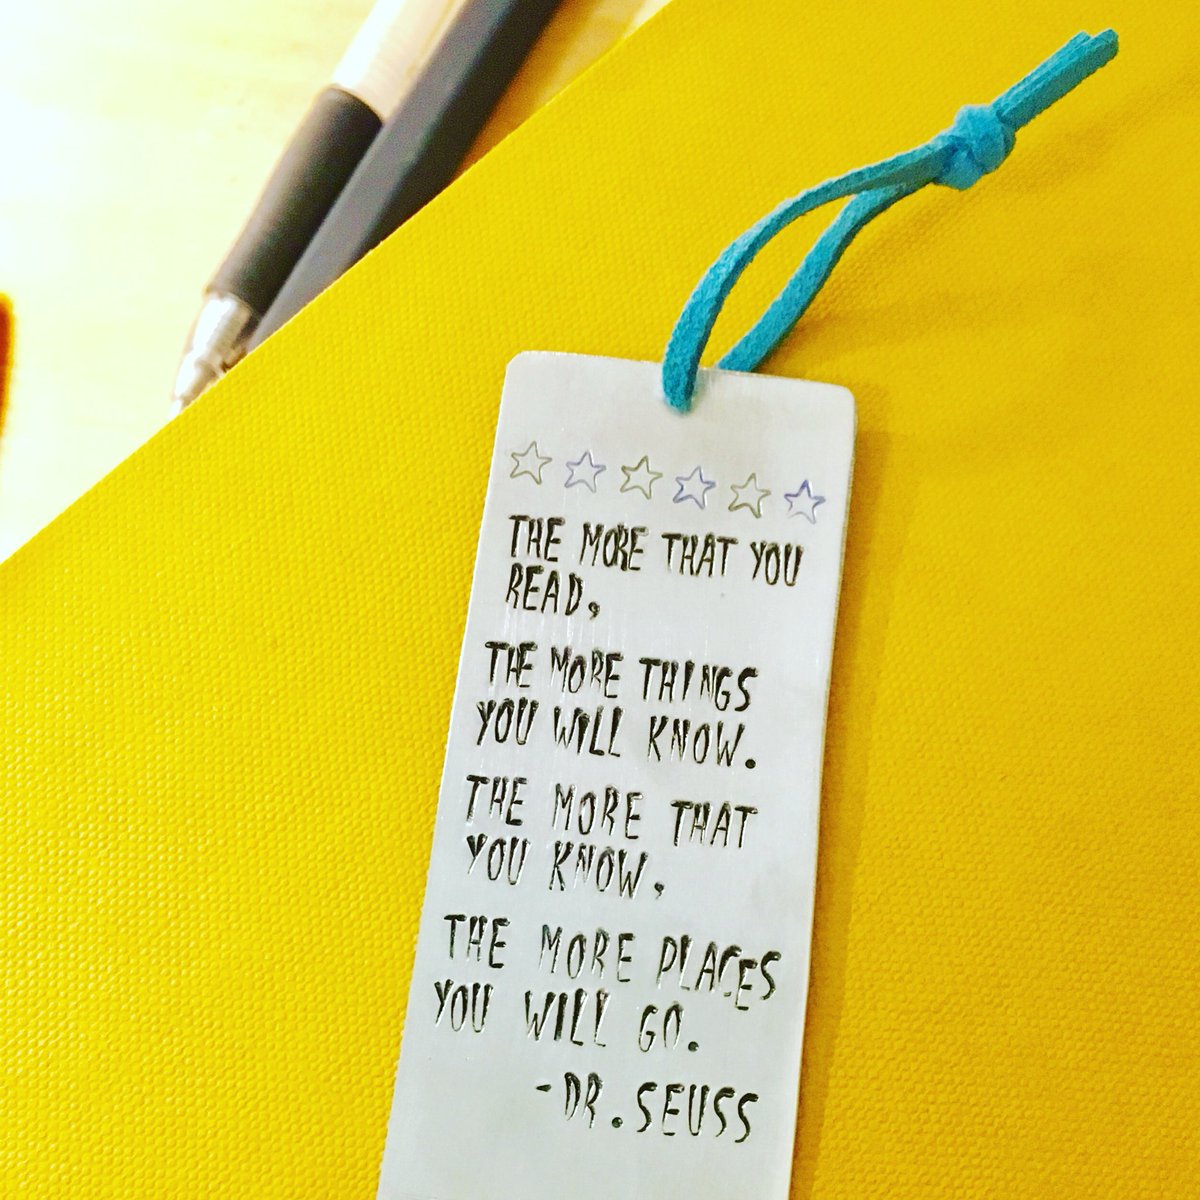 THE MORE THAT YOU
READ,
THE MORE THINGS
YOU WILL KNOW.
THE MORE THAT
YOU KNOW,
THE MORE PLACES
YOU WILL GO.
-DR.SEUSS